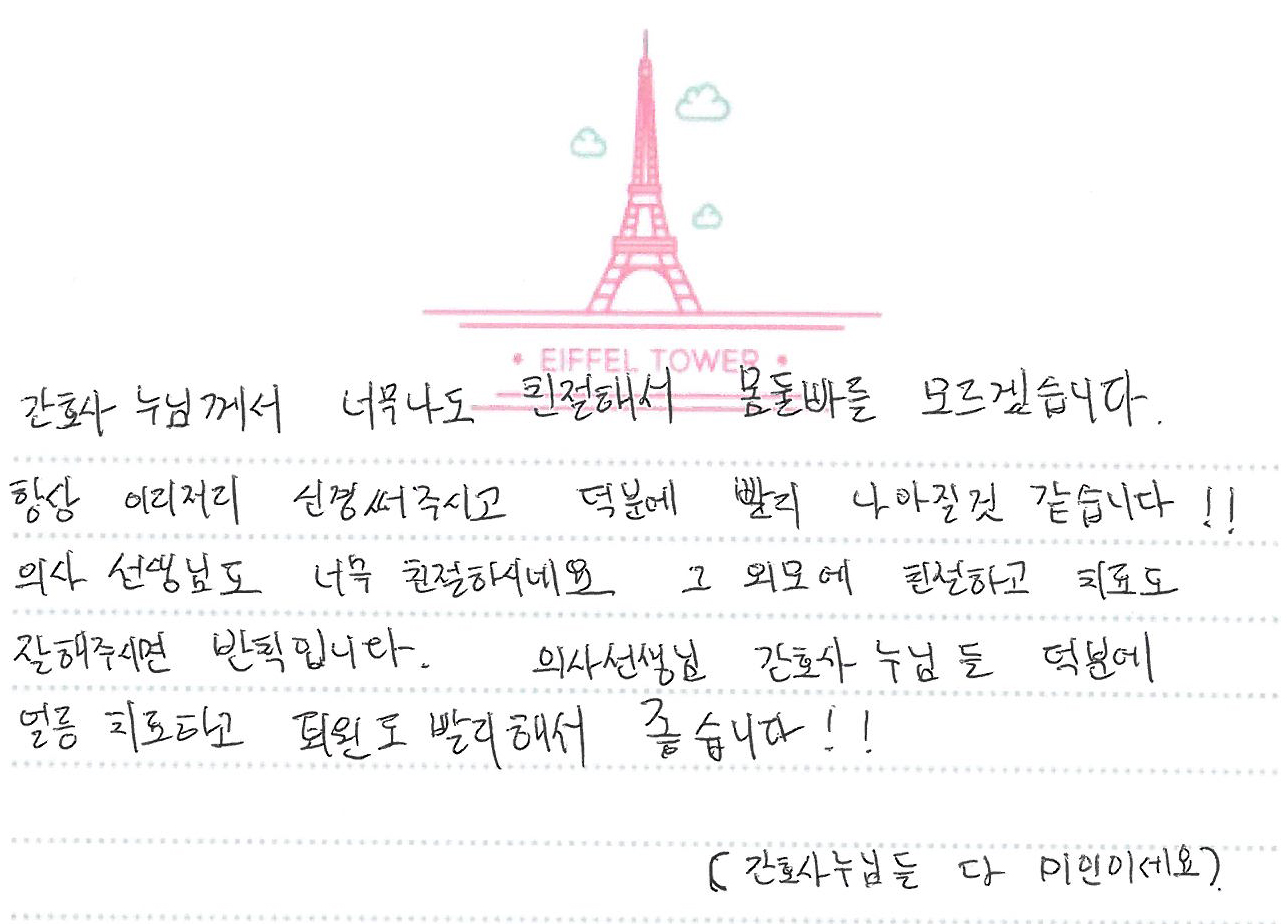 • EIFFEL TOWER •
간호사 누님께서 너무나도 친절해서 몸둘빠를 모르겠습니다.
항상 이리저리 신경써주시고 덕분에 빨리 나아질것 같습니다!!
의사 선생님도 너무 친절하시네요 그 외모에 친절하고 치료도
잘해주시면 반칙입니다. 의사선생님 간호사 누님들 덕분에
얼릉 치료하고 퇴원도 빨리해서 좋습니다!!
(간호사누님들 다 미인이세요)